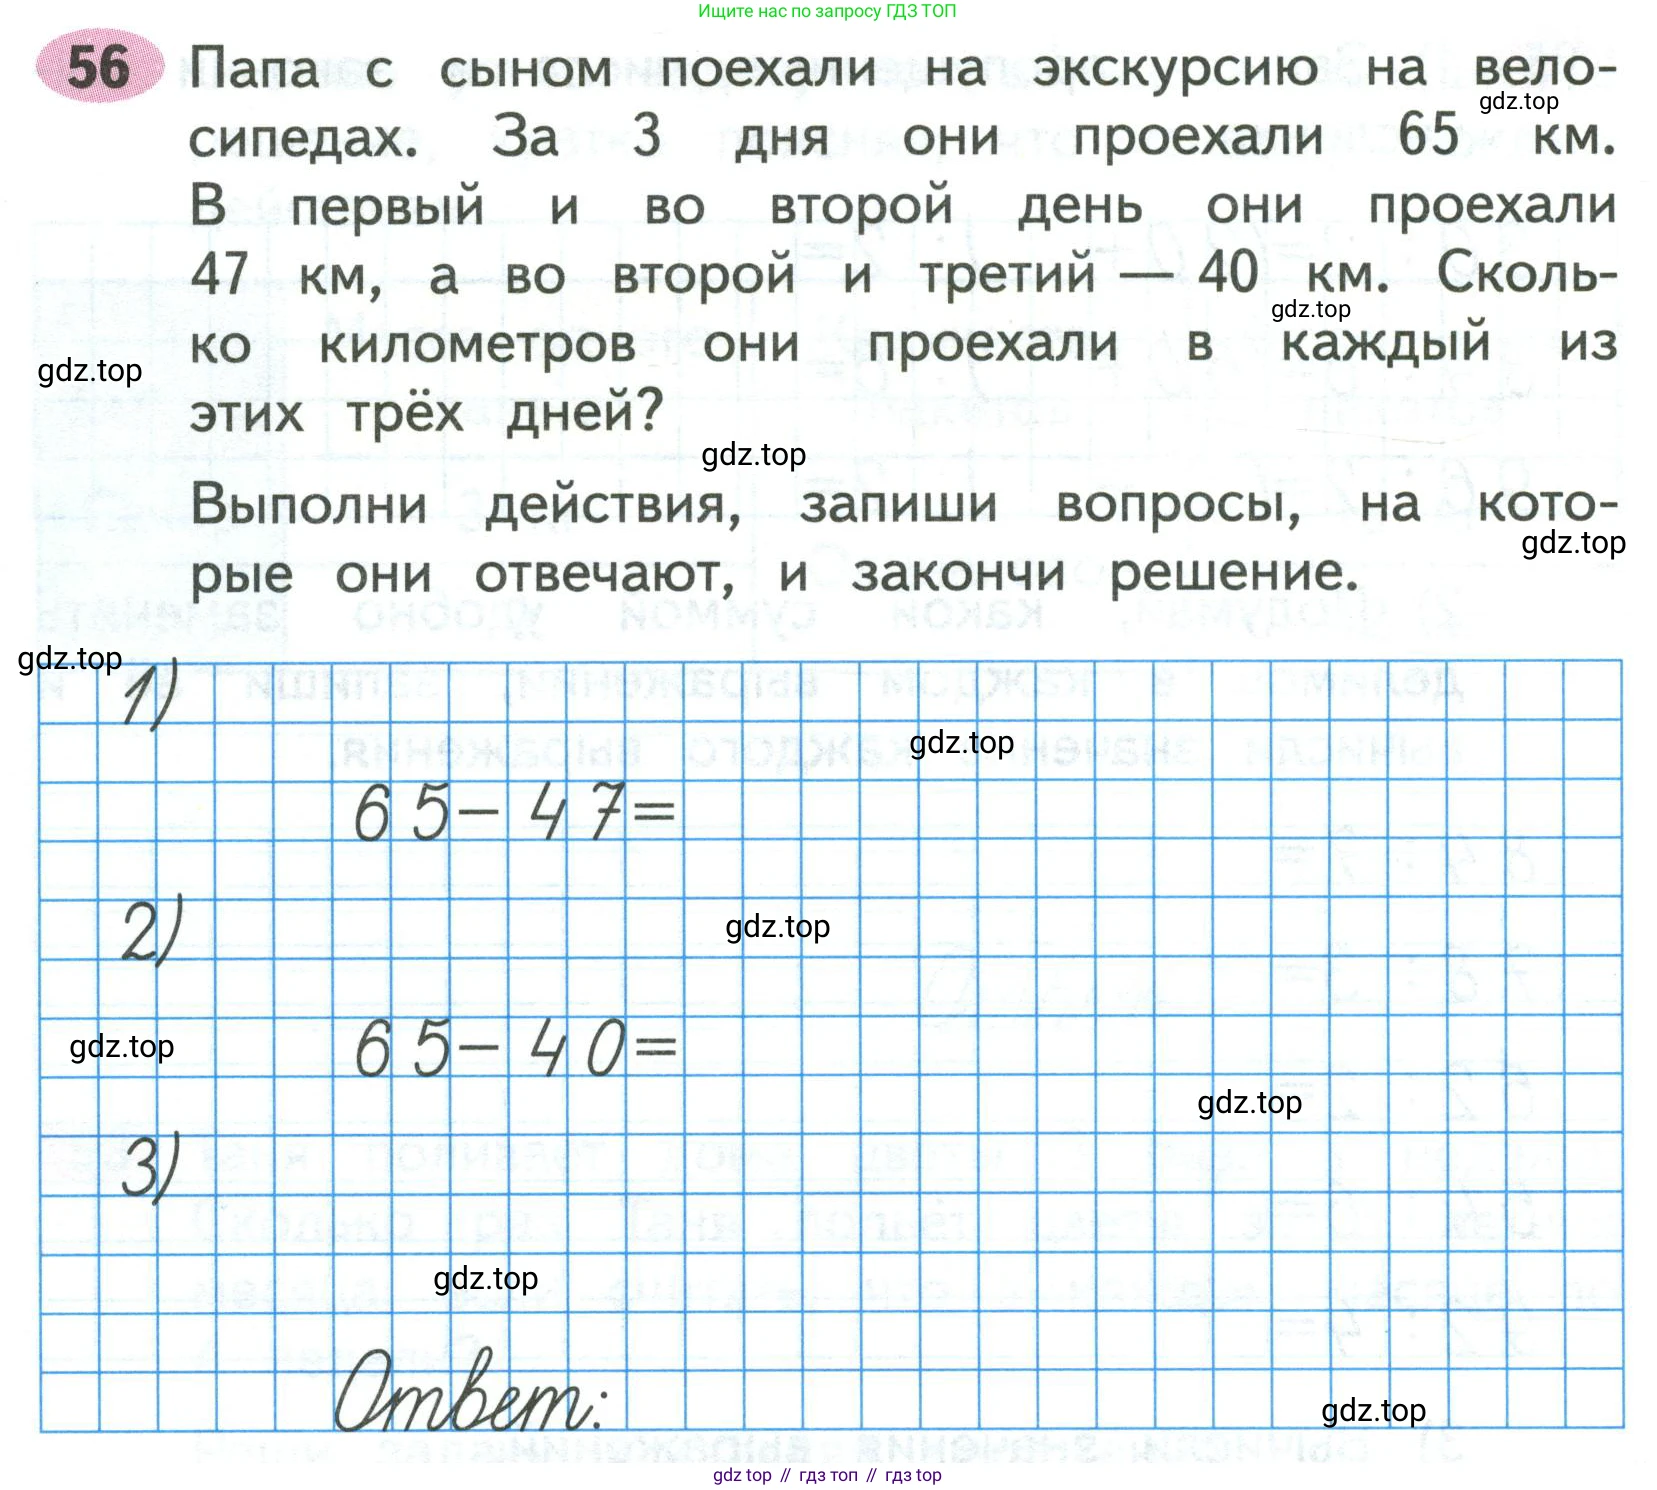 Ищите нас по запросу ГДЗ ТОП
56 Папа с сыном поехали на экскурсию на вело-
gdz.top
сипедах. За 3 дня они проехали 65 км.
В первый и во второй день они проехали
47 км, а во второй и третий — 40 км. Сколь-
gdz.top
ко километров они проехали в каждый из
gdz.top
этих трёх дней?
gdz.top
Выполни действия, запиши вопросы, на кото-
gdz.top
рые они отвечают, и закончи решение.
gdz.top
1)
gdz.top
65-47=
2)
gdz.top
65-40=
gdz.top
gdz.top
3)
gdz.top
Ответ:
gdz.top
gdz top // гдз топ // гдз top